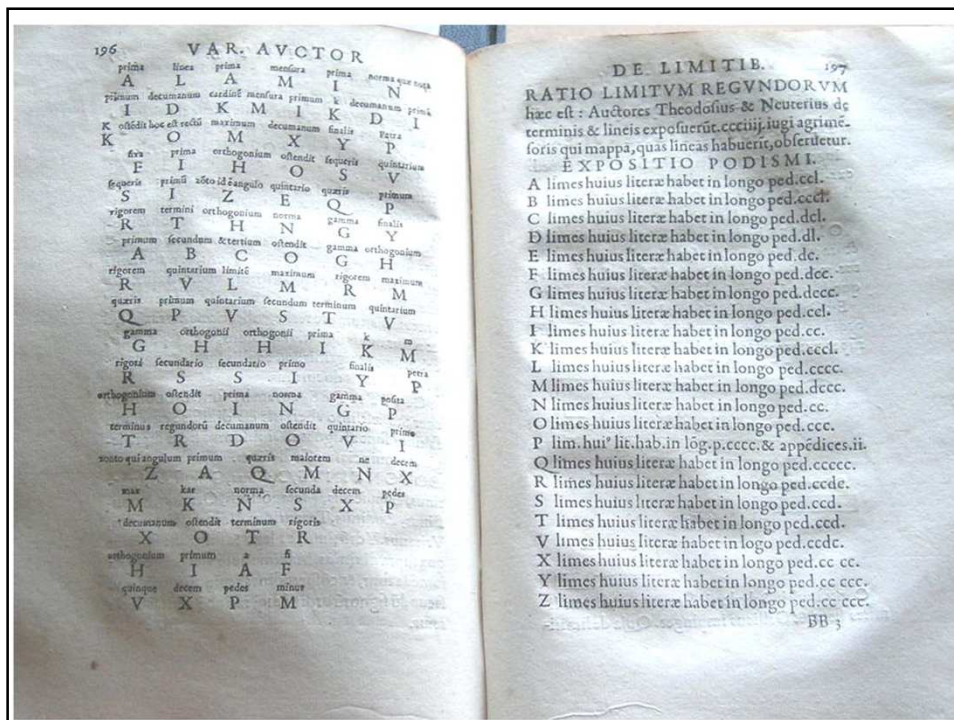 196 VAR. AVCTOR
prima linea prima mensura prima norma que
A L A M I N
primum decumanum cardinẽ mensura primum k decumanum primã
I D K M I K D I
K ostẽdit hoc est rectũ maximum decumanum finalis Patra
K O M X Y P
fixa prima orthogonium ostendit sequeris quintarium
F I H O S V
sequeris primũ zõto id ẽ angulo quintario quæris primum
S I Z E Q P
rigorem termini orthogonium norma gamma finalis
R T H N G Y
primum secundum & tertium ostendit gamma orthogonium
A B C O G H
rigorem quintarium limitẽ maximum rigorem maximum
R V L M R M
quæris primum quintarium secundum terminum quintarium
Q P V S T V
gamma orthogonii orthogonii prima k m
G H H I K M
rigori secundario secundario primo finalis petra
R S S I Y P
orthogonium ostendit prima norma gamma posita
H O I N G P
terminus regundorũ decumanum ostendit quintario primo
T R D O V I
zonto qui angulum primum quæris maiorem ne decem
Z A Q M N X
max kar norma secunda decem pedes
M K N S X P
decumanum ostendit terminum rigoris
X O T R
orthogonium primum a fi
H I A F
quinque decem pedes minus
V X P M
DE LIMITIB. 197
RATIO LIMITVM REGVNDORVM
hæc est : Auctores Theodosius & Neuterius de
terminis & lineis exposuerũt.ccciiij.iugi agrimẽ-
soris qui mappa, quas lineas habuerit, obseruetur.
EXPOSITIO PODISMI.
A limes huius literæ habet in longo ped.ccl.
B limes huius literæ habet in longo ped.cccl.
C limes huius literæ habet in longo ped.dcl.
D limes huius literæ habet in longo ped.dl.
E limes huius literæ habet in longo ped.dc.
F limes huius literæ habet in longo ped.dcc.
G limes huius literæ habet in longo ped.dccc.
H limes huius literæ habet in longo ped.ccl.
I limes huius literæ habet in longo ped.cc.
K limes huius literæ habet in longo ped.cccl.
L limes huius literæ habet in longo ped.cccc.
M limes huius literæ habet in longo ped.dccc.
N limes huius literæ habet in longo ped.cc.
O limes huius literæ habet in longo ped.ccc.
P lim. hui⁹ lit.hab.in lõg.p.cccc.& appẽdices.ii.
Q limes huius literæ habet in longo ped.ccccc.
R limes huius literæ habet in longo ped.ccdc.
S limes huius literæ habet in longo ped.ccd.
T limes huius literæ habet in longo ped.ccd.
V limes huius literæ habet in lõgo ped.ccdc.
X limes huius literæ habet in longo ped.cc cc.
Y limes huius literæ habet in longo ped.cc ccc.
Z limes huius literæ habet in longo ped.cc ccc.
BB 3